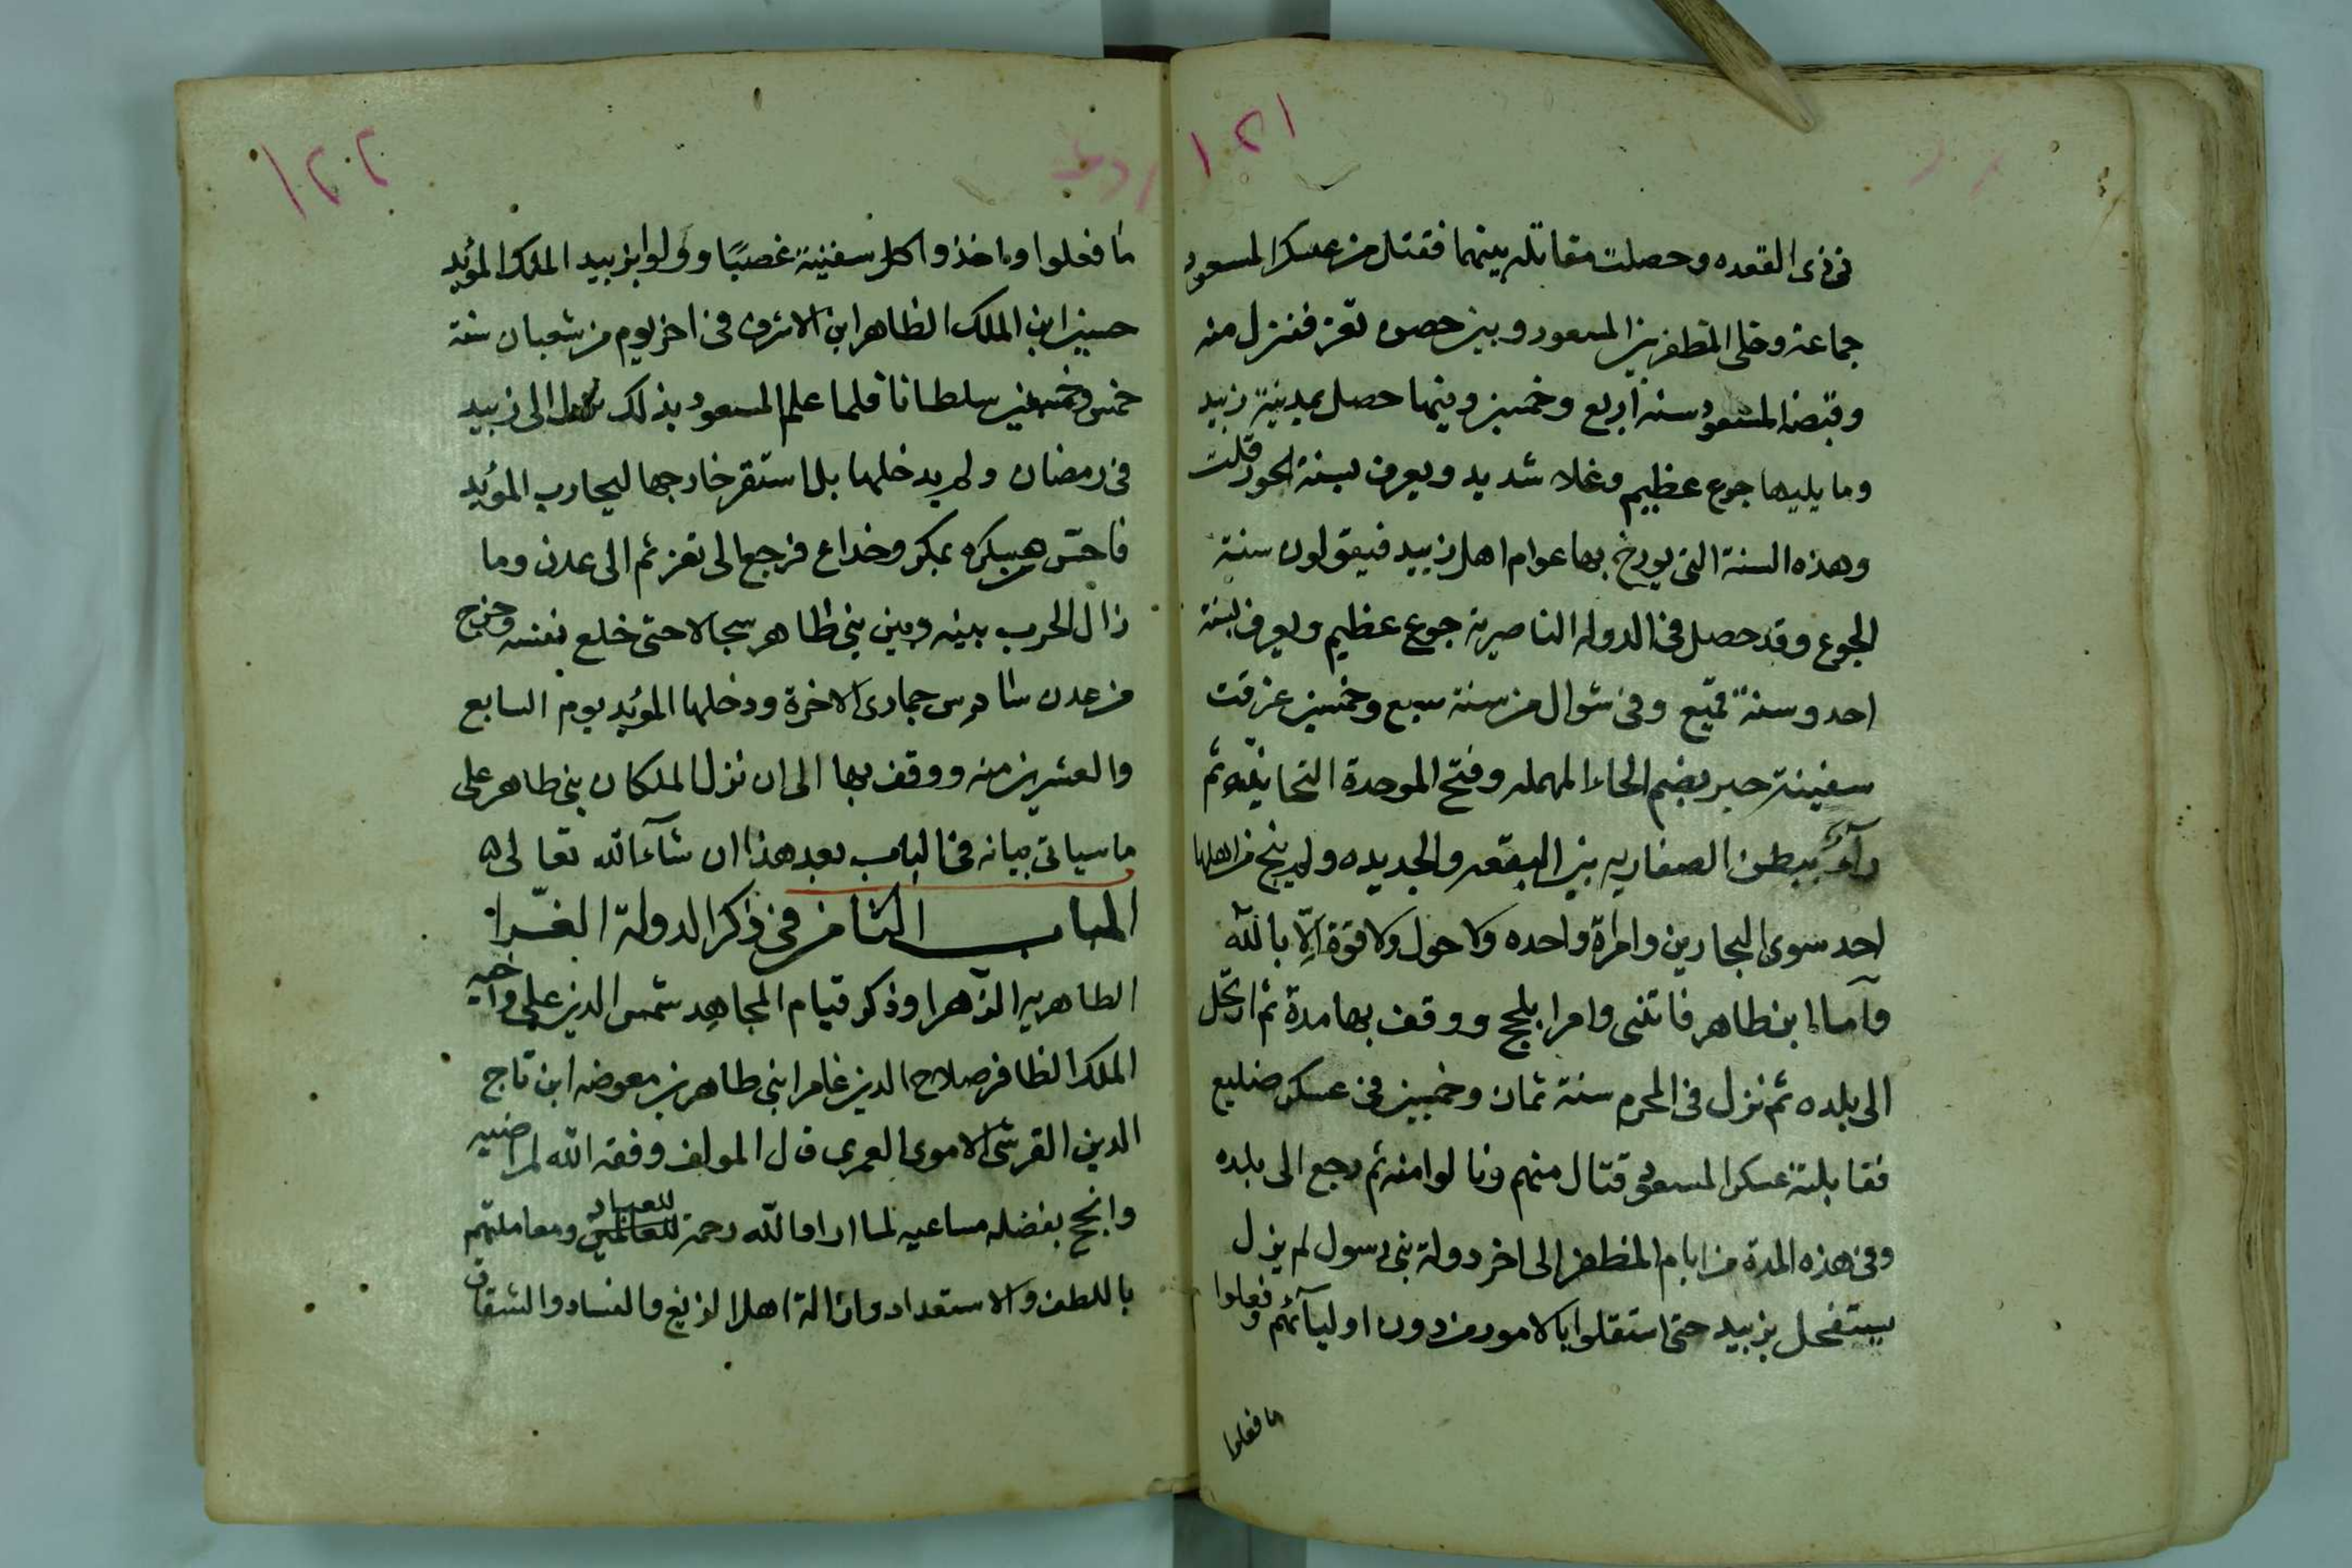 ١٢١
في ذى القعده وحصلت مقاتله بينهما فقتل من عسكر المسعود
جماعة وخلى المظفر بين المسعود وبين حصن تعز فنزل منه
وقبضه المسعود سنة اربع وخمسين وفيها حصل بمدينة زبيد
وما يليها جوع عظيم وغلا شديد ويعرف بسنة الحور قلت
وهذه السنة التى يورخ بها عوام اهل زبيد فيقولون سنة
الجوع وقد حصل فى الدوله الناصرية جوع عظيم ويعرف بسنة
احد وسنة قميع وفى شوال من سنة سبع وخمسين غرقت
سفينة حبير بضم الحاء المهمله وفتح الموحدة التحانية ثم
راء ببطن الصفاريه بين البقعه والجديده ولم ينج من اهلها
احد سوى البحارين وامراة واحده ولا حول ولا قوة الّا بالله
وآما ابن طاهر فاتثنى وامرا بلحج ووقف بها مدة ثم ارتحل
الى بلده ثم نزل فى المحرم سنة ثمان وخمسين فى عسكر ضليع
فقابلته عسكر المسعود قتال منهم ونالوا منه ثم رجع الى بلده
وفى هذه المدة من ايام المظفر الى اخر دولة بنى رسول لم يزل
يستفحل بزبيد حتى استقلوا بالامور من دون اوليآئهم وفعلوا
ما فعلوا
١٢٢
ما فعلوا واخذوا كل سفينة غصبًا وولوا بزبيد الملك المؤيد
حسين ابن الملك الظاهر ابن الاشرف فى اخر يوم من شعبان سنة
خمس وخمسين سلطانا فلما علم المسعود بذلك نزل الى زبيد
فى رمضان ولم يدخلها بل استقر خارجها ليحارب المؤيد
فاحتس عسكره بمكر وخداع فرجع الى تعز ثم الى عدن وما
زال الحرب بينه وبين بنى طاهر سجالا حتى خلع نفسه وخرج
من عدن سادس جمادى الاخرة ودخلها المؤيد يوم السابع
والعشرين منه ووقف بها الى ان نزل الملكان بنى طاهر على
ما سياتى بيانه فى الباب بعد هذا ان شآء الله تعالى ٥
الباب الثامن فى ذكر الدولة الغرّا
الطاهريه الزهرا وذكر قيام المجاهد شمس الدين على واخيه
الملك الظافر صلاح الدين عامر ابنى طاهر بن معوضه ابن تاج
الدين القرشى الاموى العمرى قال المولف وفقه الله لمراضيه
وانجح بفضله مساعيه لما اراد الله رحمة للعالمين للعباد ومعاملتهم
باللطف والاستعداد وازالة اهل الزيغ والفساد والشقاق